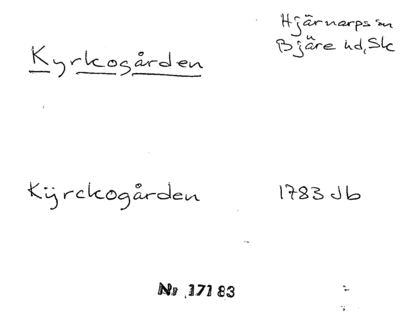 Kyrkogården
Hjärnarps sn
Bjäre hd, Sk
Kÿrckogården 1783 Jb
No 17183